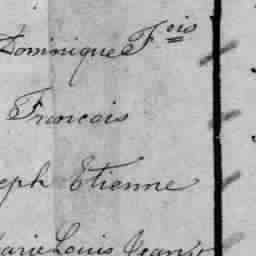 Dominique Fois
Francois
eph Etienne
arie Louis Jean